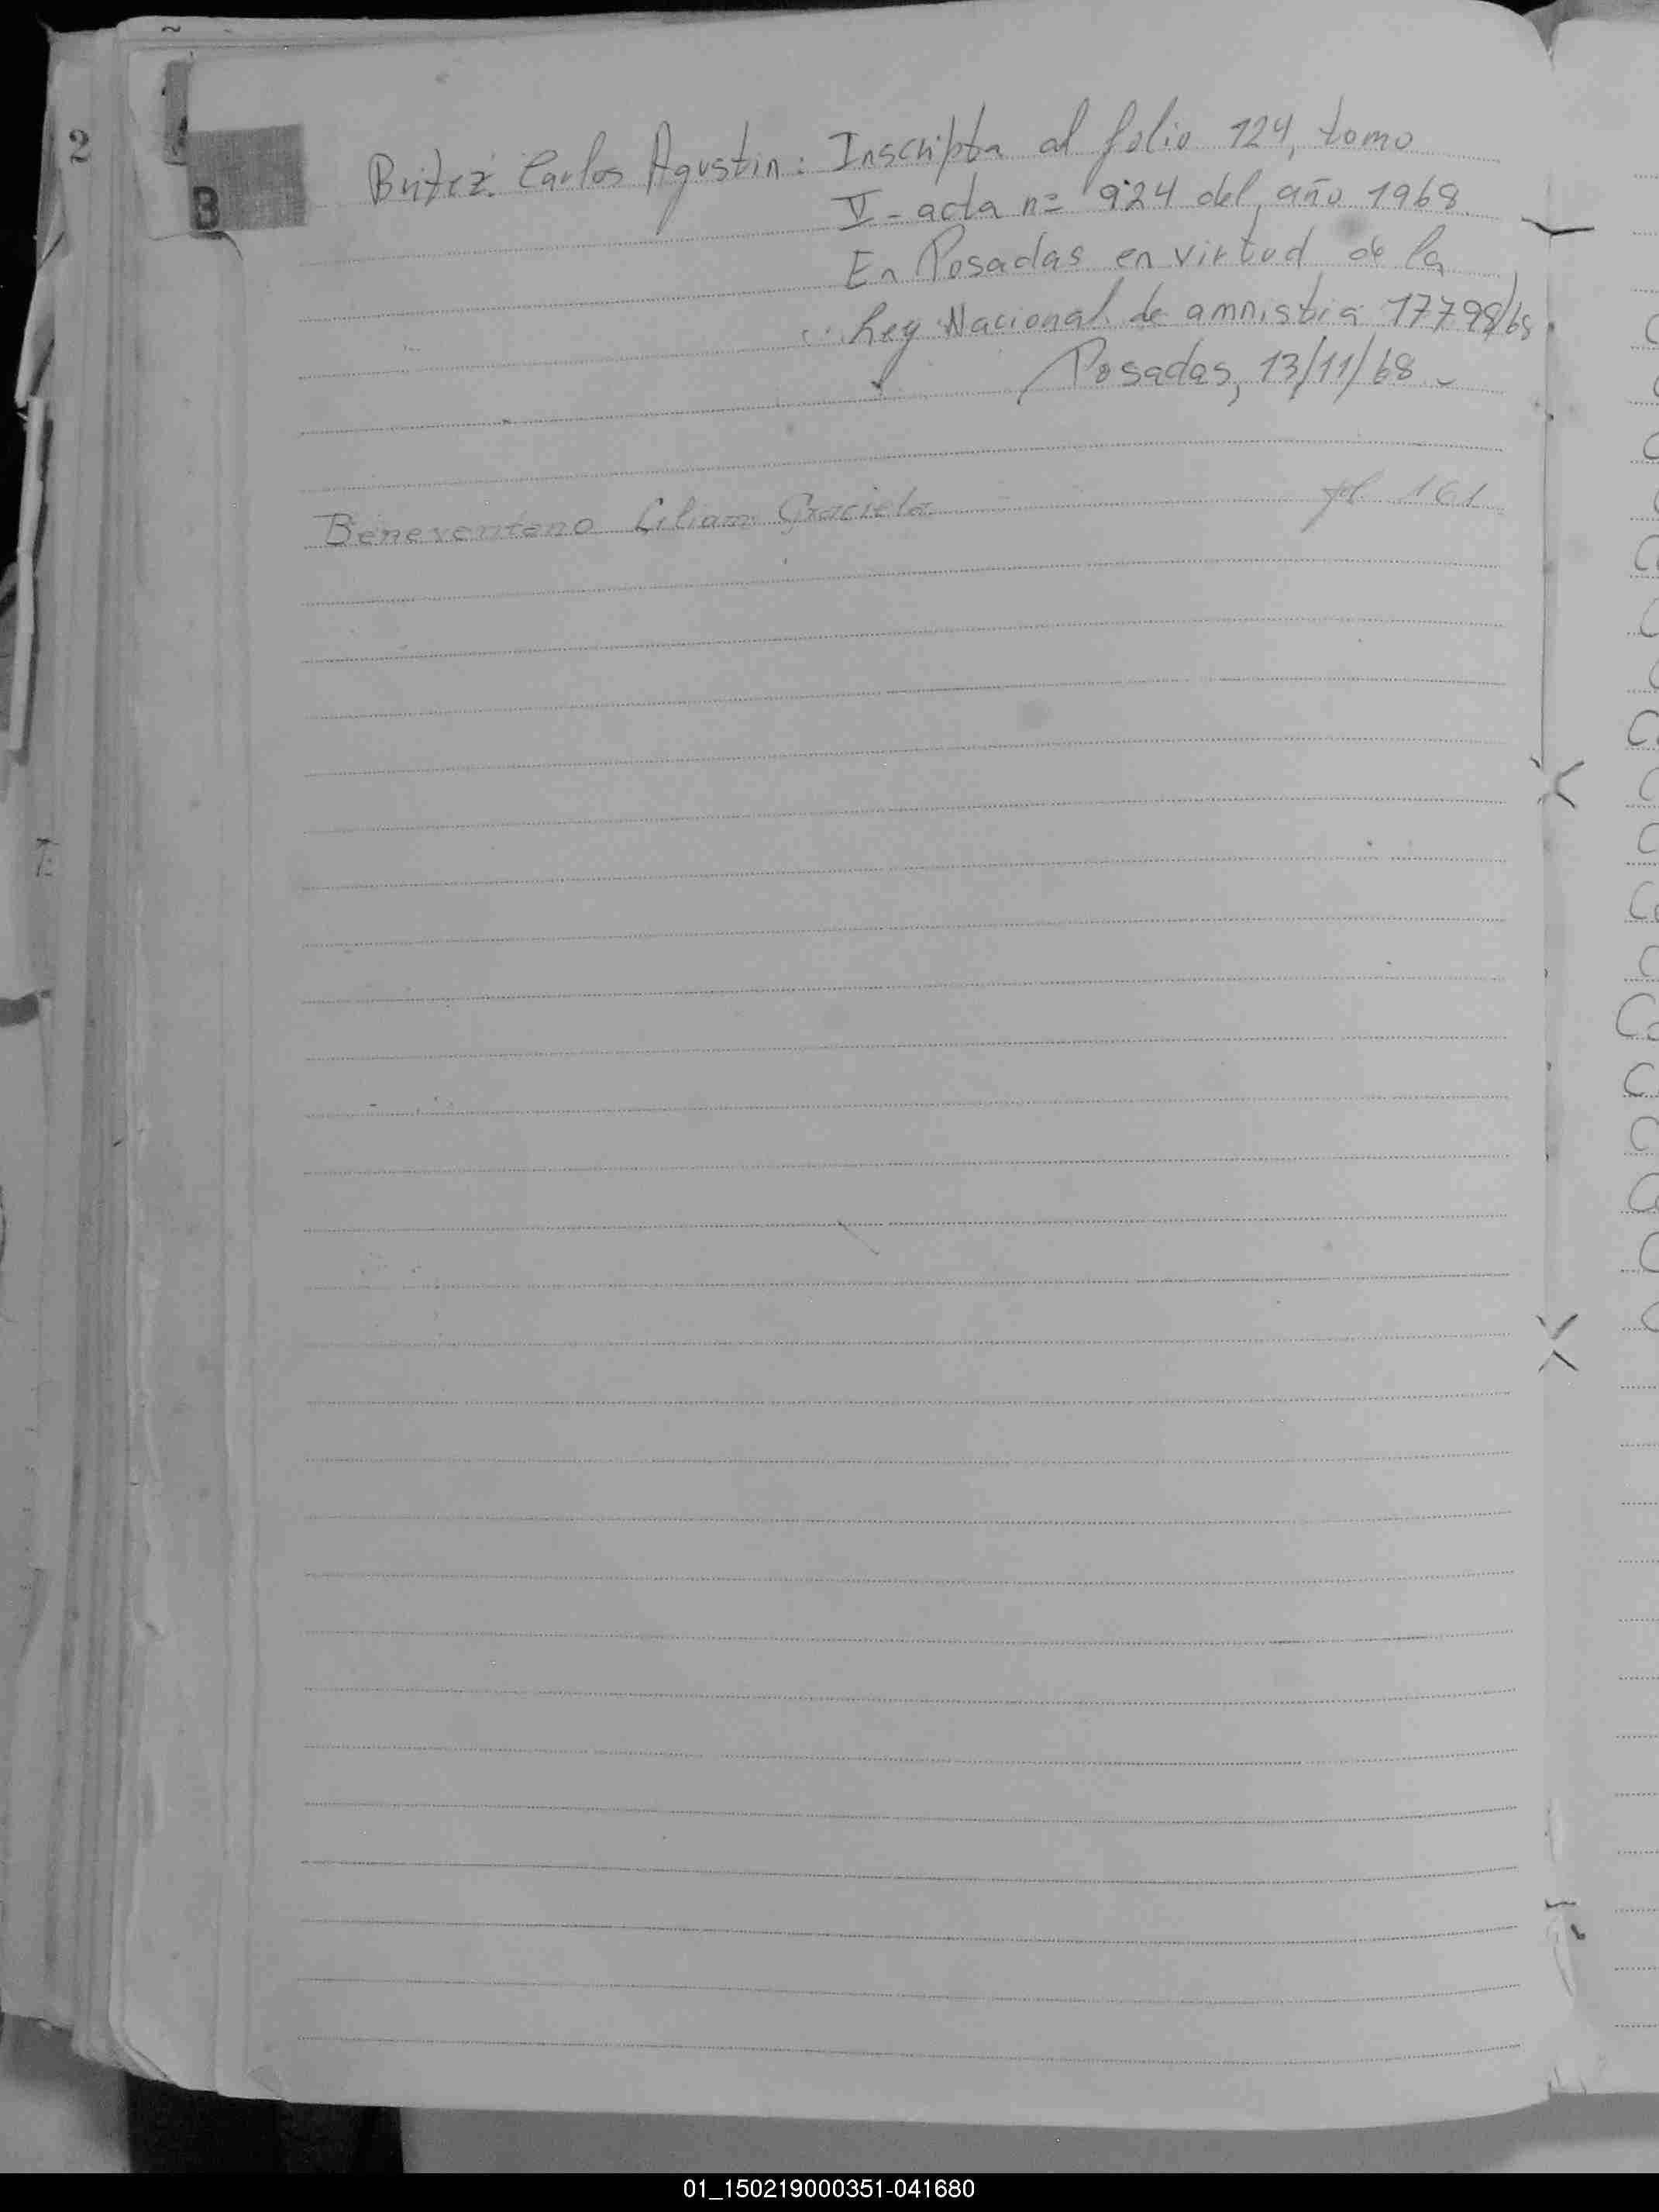 2
B
Britez Carlos Agustin: Inscripta al folio 124, tomo
V - acta n= 924 del año 1968
En Posadas en virtud de la
Ley Nacional de amnistia 17798/68
Posadas, 13/11/68 -
Beneventano Lilian Graciela fl 161
01_150219000351-041680